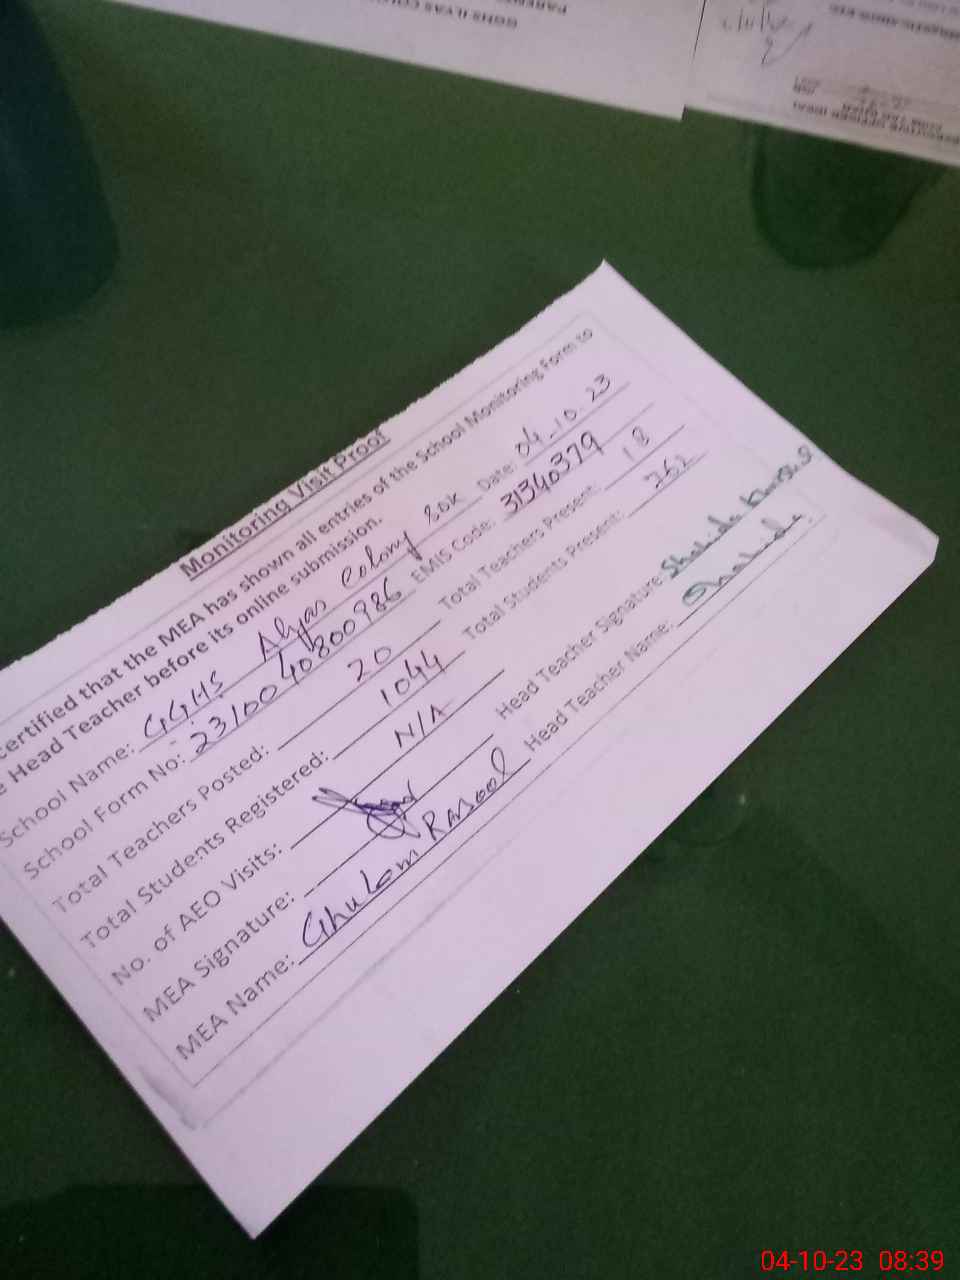 GGHS ILYAS COLO
PAREN
Monitoring Visit Proof
certified that the MEA has shown all entries of the School Monitoring Form to
Head Teacher before its online submission.
School Name: GGHS Alyas Colony SDK Date: 04.10.23
School Form No: 2310040800986 EMIS Code: 31340379
Total Teachers Posted: 20 Total Teachers Present: 18
Total Students Registered: 1044 Total Students Present: 762
No. of AEO Visits: N/A
MEA Signature: Head Teacher Signature: Shahida Khurshid
MEA Name: Ghulam Rasool Head Teacher Name: Shahida
04-10-23 08:39